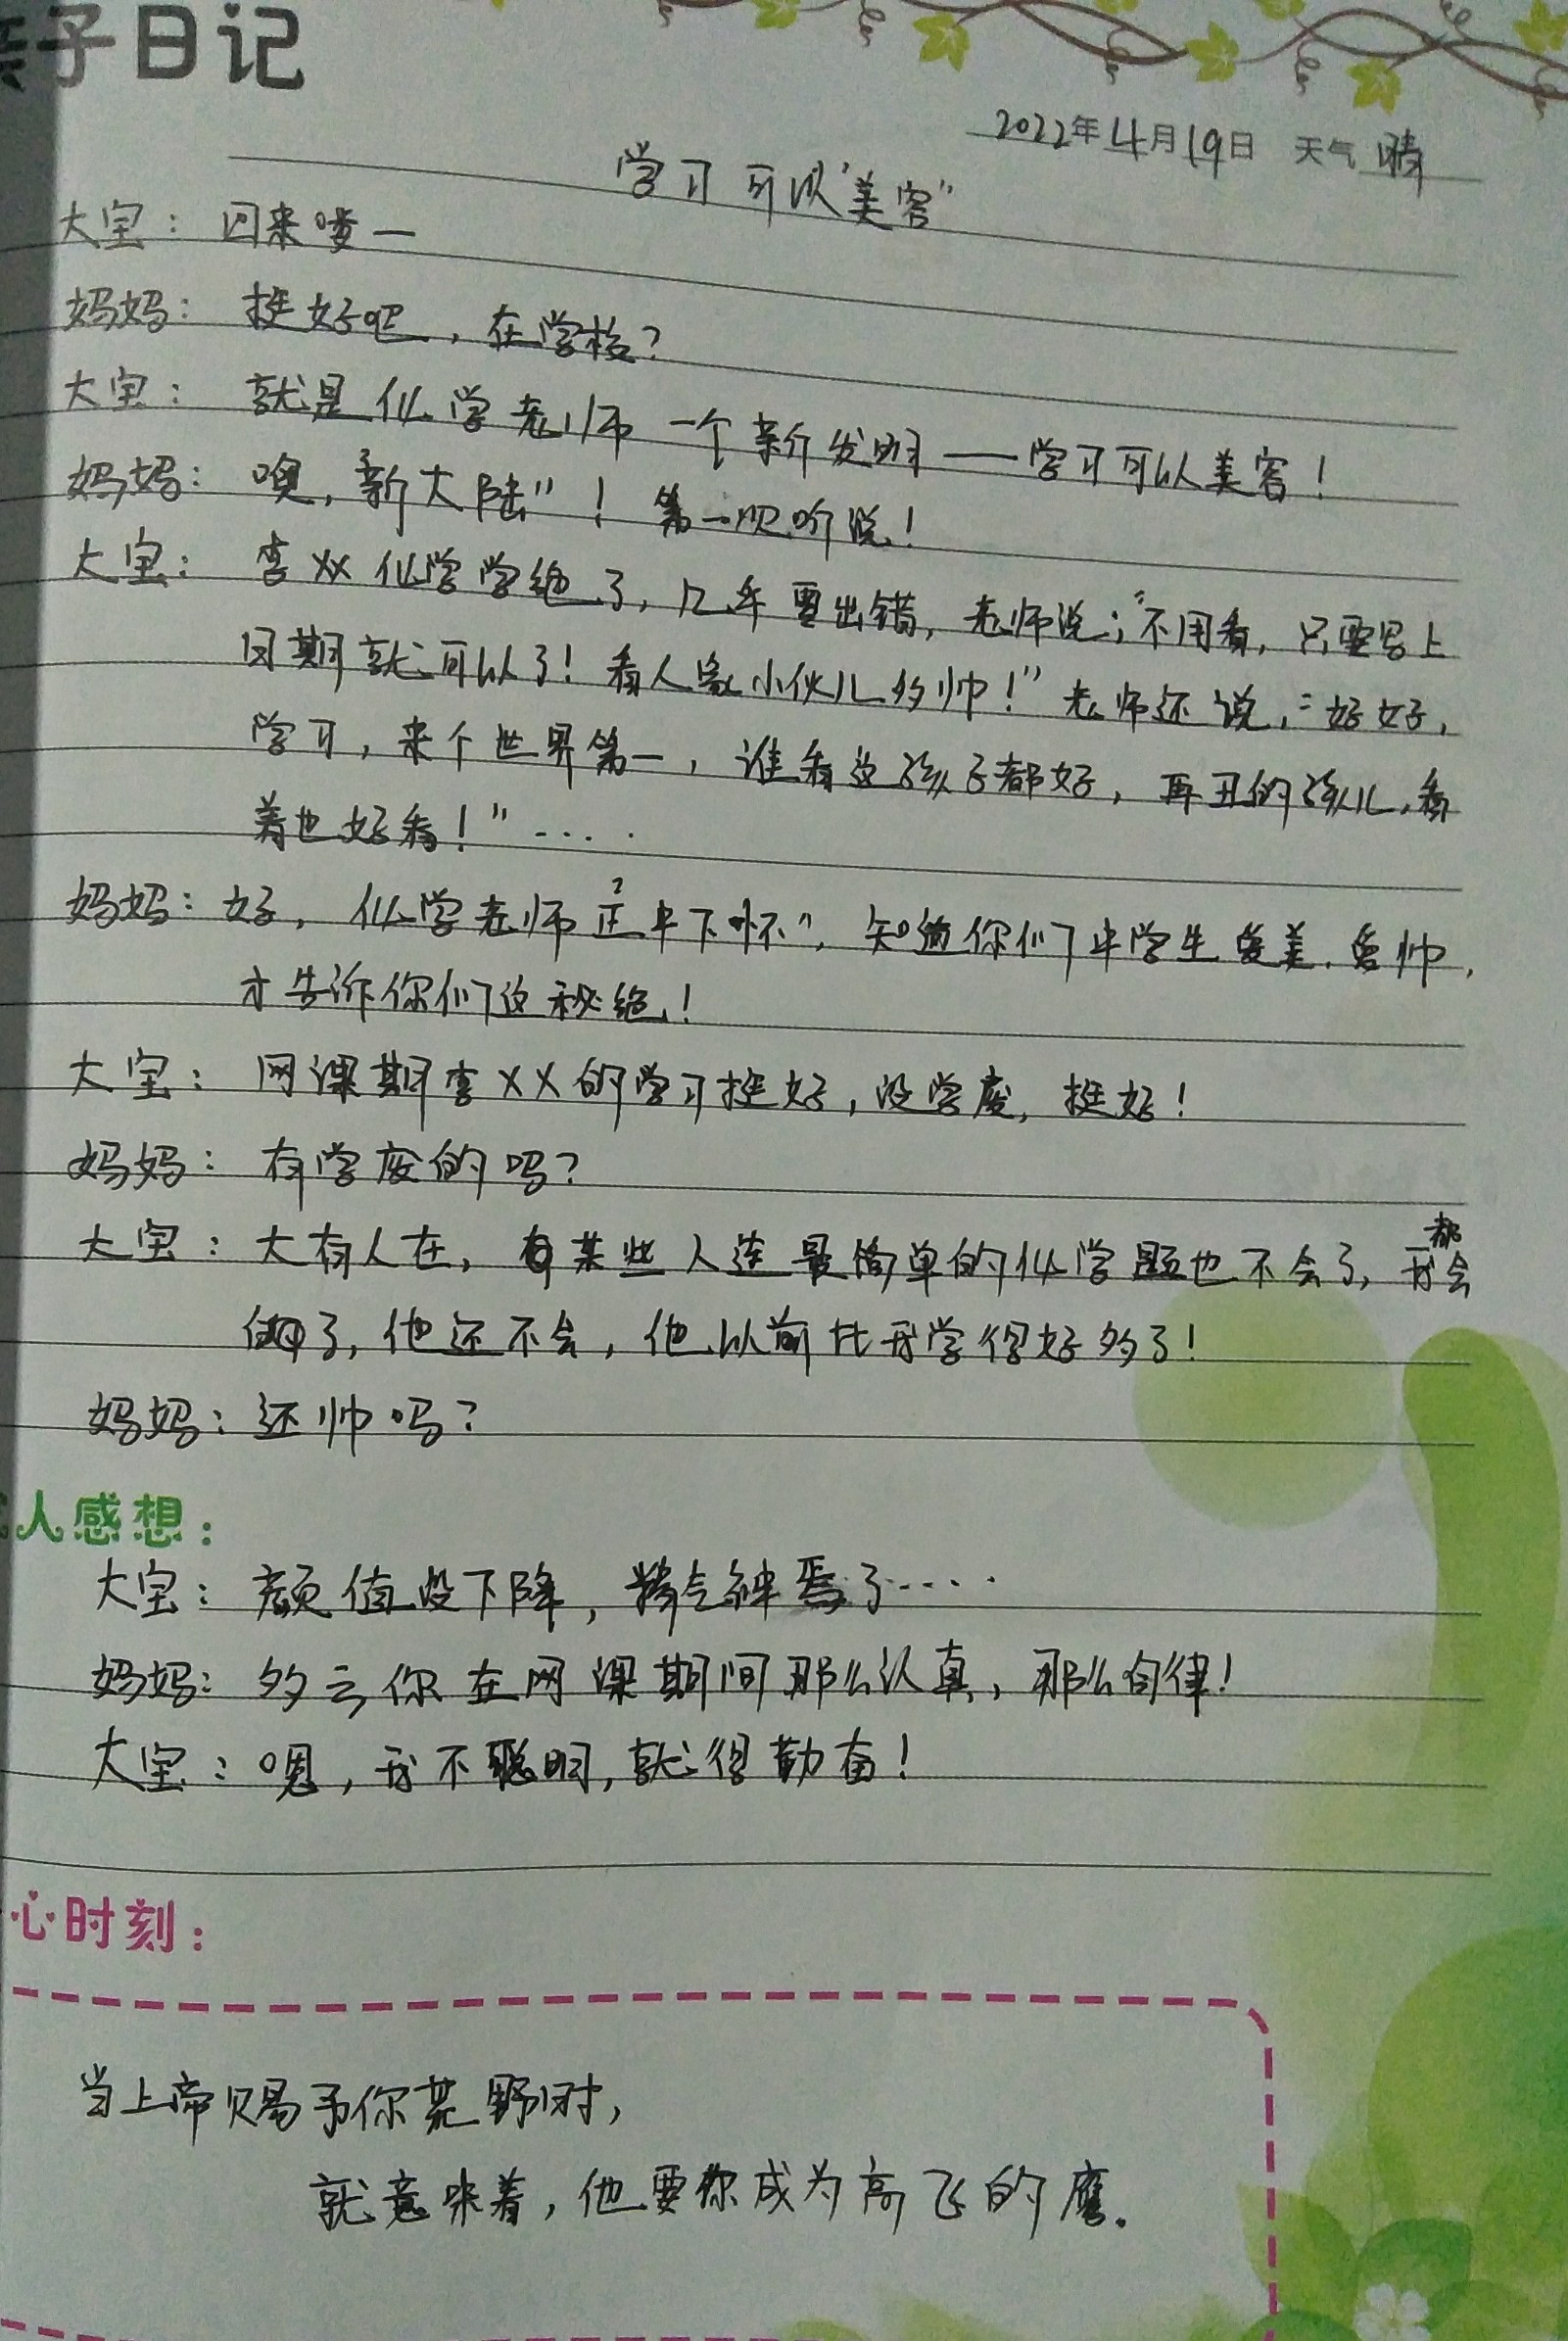 亲子日记
2022年4月19日 天气 晴
学习可以“美容”
大宝：回来喽—
妈妈：挺好吧，在学校？
大宝：就是化学老师一个新发明——学习可以美容！
妈妈：噢，“新大陆”！第一次听说！
大宝：李XX化学学绝了，几乎要出错，老师说：“不用看，只要写上
日期就可以了！看人家小伙儿多帅！”老师还说，“好好，
学习，来个世界第一，谁看这孩子都好，再丑的孩儿，看
着也好看！”.....
妈妈：好，化学老师“正中下怀”，知道你们中学生爱美、爱帅，
才告诉你们这秘绝！
大宝：网课期李XX的学习挺好，没学废，挺好！
妈妈：有学废的吗？
大宝：大有人在，有某些人连最简单的化学题也不会了，我都会
做了，他还不会，他以前比我学得好多了！
妈妈：还帅吗？
人感想：
大宝：颜值没下降，精气神蔫了.....
妈妈：多亏你在网课期间那么认真，那么自律！
大宝：嗯，我不聪明，就得勤奋！
心时刻：
当上帝赐予你荒野时，
就意味着，他要你成为高飞的鹰。